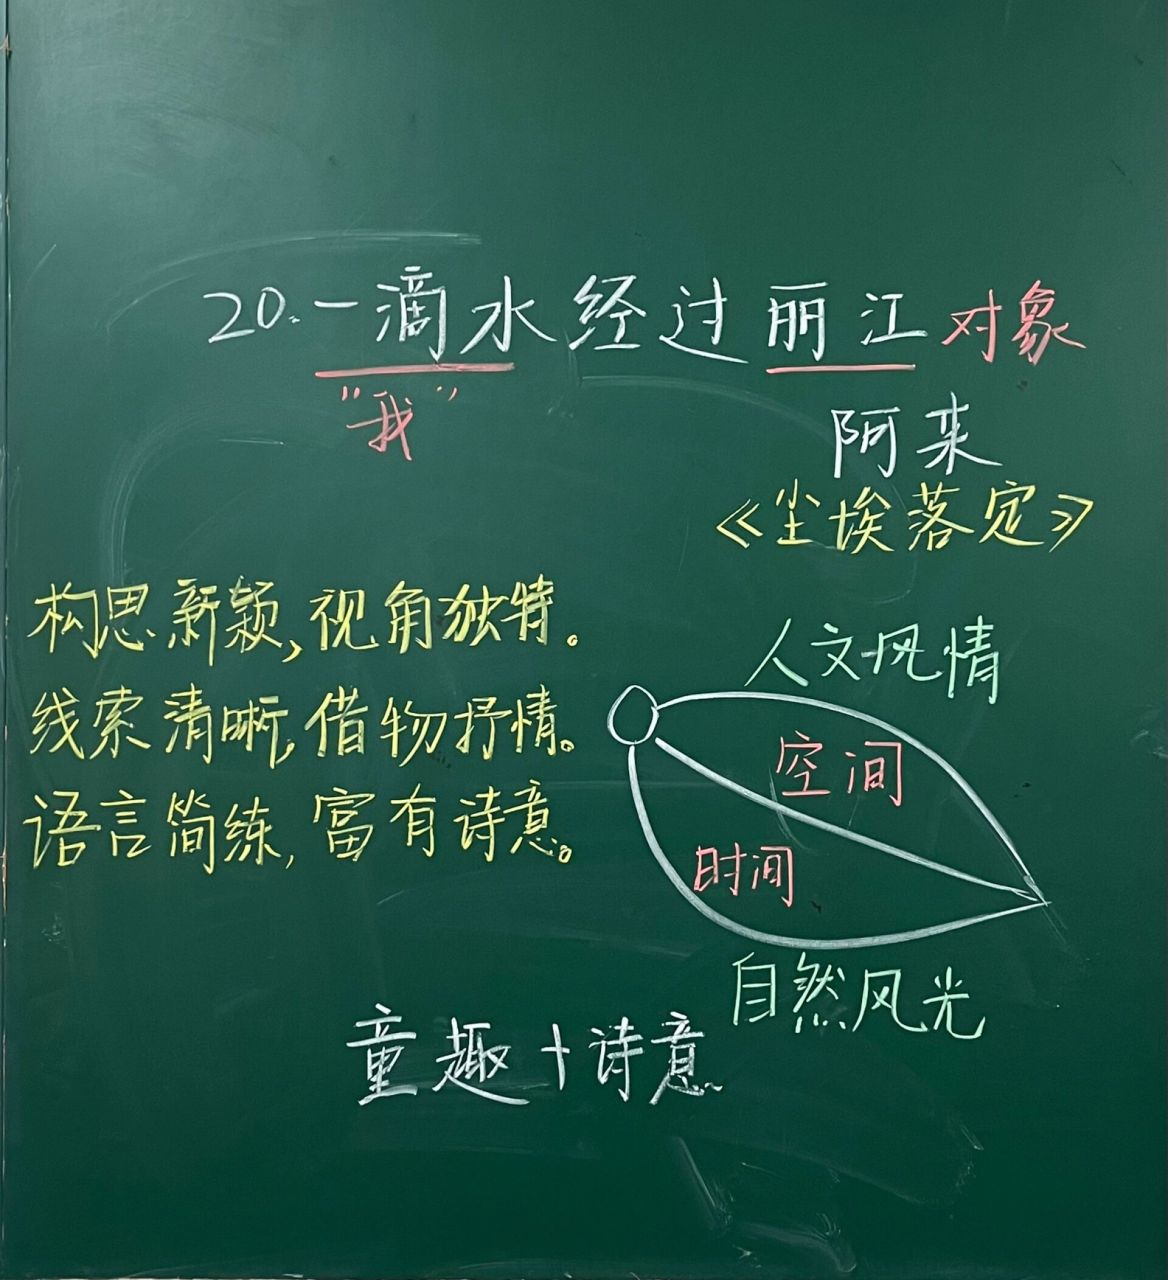 20.一滴水经过丽江 对象
"我"
阿来
《尘埃落定》
构思新颖,视角独特。
线索清晰,借物抒情。
语言简练,富有诗意。
人文风情
空间
时间
自然风光
童趣+诗意